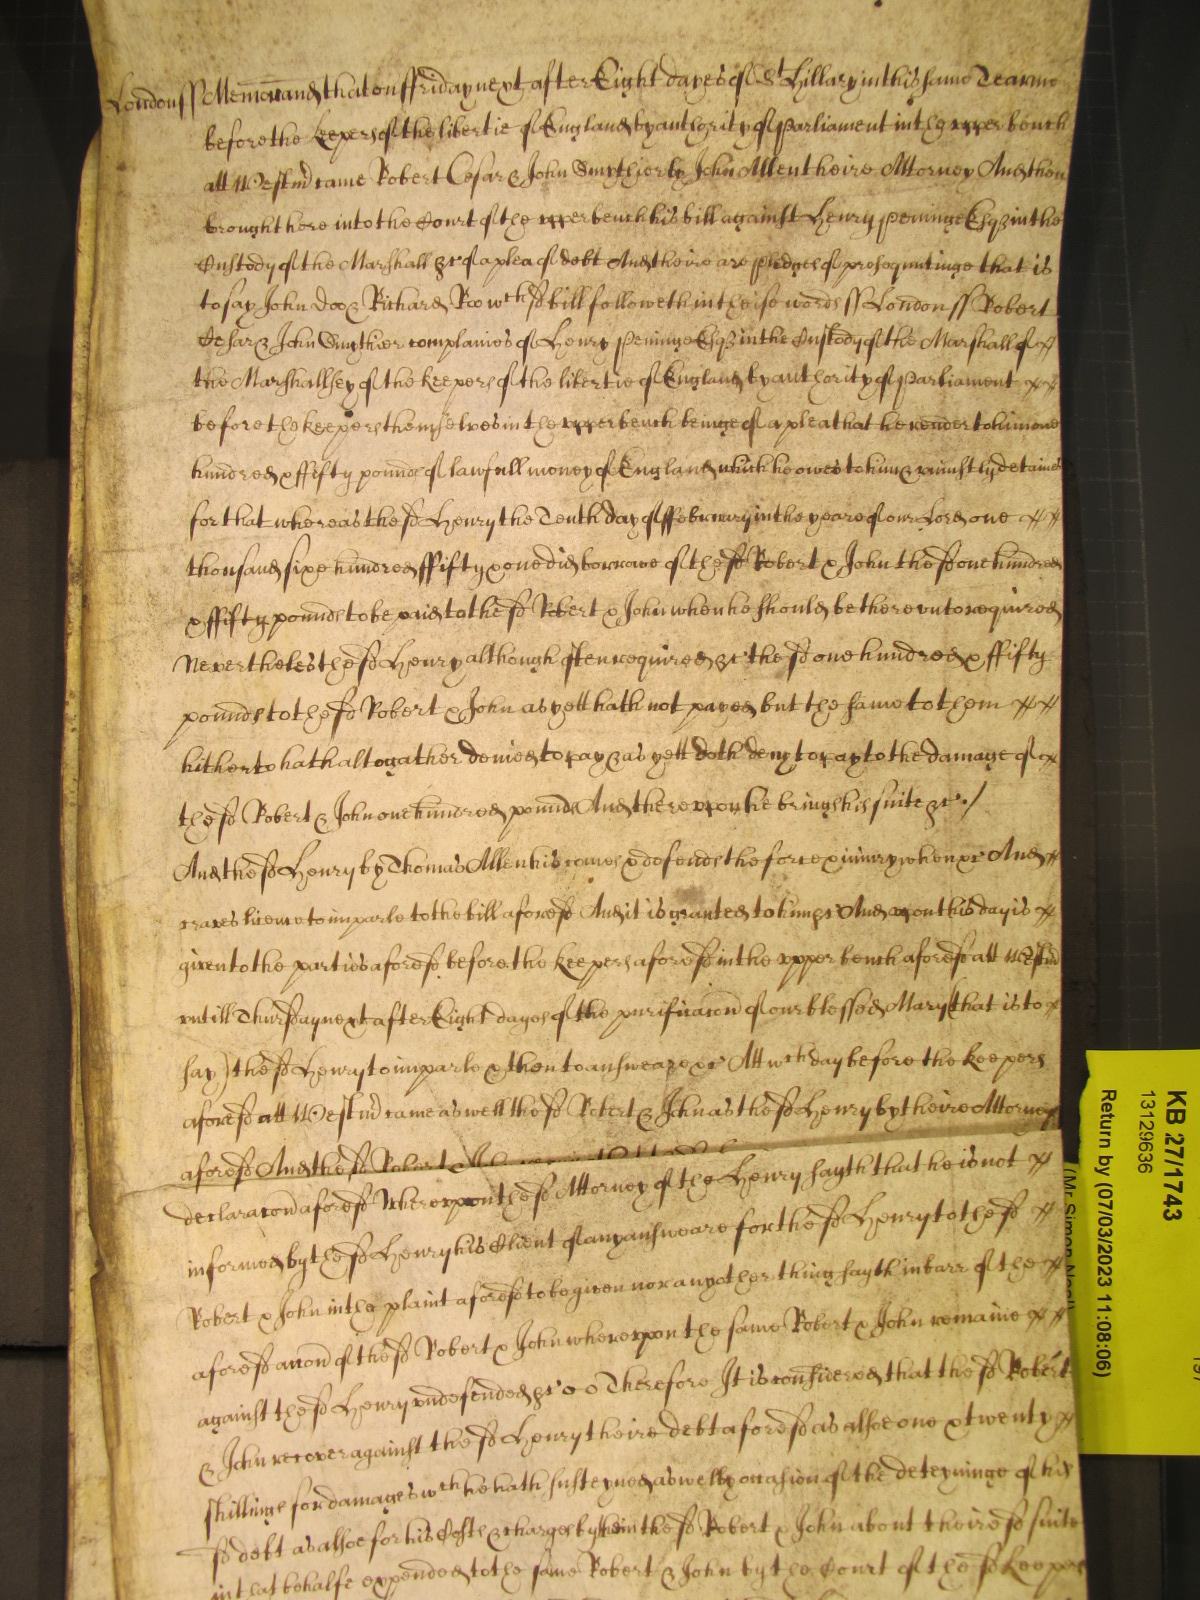 London ss Memorand that on ffriday next after Eight dayes of St Hillary in this same Tearme
before the keepers of the libertie of England by authority of Parliament in the upper bench
att Westm̃ came Robert Cesar & John Smythier by John Allen theire Attorney And then
brought here into the Court of the upper bench his bill against Henry Peninge Esqz in the
Custody of the Marshall &c of a plea of debt And theire are pledges of prosequutinge that is
to say John Doo & Richard Roo wch sd bill followeth in theise words ss London ss Robert
Cesar & John Smythier complaines of Henry Peninge Esqz in the Custody of the Marshall of
the Marshallsey of the keepers of the libertie of England by authority of Parliament
before the keepers themselves in the upper bench beinge of a plea that he render to him one
hundred & ffifty pounds of lawfull money of England which he owes to him & uniustly detaines
for that whereas the sd Henry the Tenth day of ffebruary in the yeare of our Lord one
thousand sixe hundred ffifty & one did borrowe of the sd Robert & John the sd one hundred
& ffifty pounds to be paid to the sd Robert & John when he should be thereunto required
Neverthelesthe sd Henry although often required &c the sd one hundred & ffifty
pounds to the sd Robert & John as yett hath not payed but the same to them
hitherto hath altogather denied to pay & as yett doth deny to pay to the damage of
the sd Robert & John one hundred pounds And thereupon he brings his suite &c ./
And the sd Henry by Thomas Allen his comes & defends the force & iniury when &c And
craves licence to imparle to the bill aforesd And it is granted to him &c And upon this day is
given to the parties aforesd before the keepers aforesd in the upper bench aforesd att Westm̃
untill Thursday next after Eight dayes of the purificacon of our blessed Mary (that is to
say) the sd Henry to imparle & then to answeare &c Att wch day before the keepers
aforesd att Westm̃ came as well the sd Robert & John as the sd Henry by theire Attorneys
aforesd And the sd Robert
declaracon aforesd Whereupon the sd Attorney of the Henry sayth that he is not
informed by the sd Henry his Client of any answeare for the sd Henry to the sd
Robert & John in the plaint aforesd to be given nor any other thing sayth in barr of the
aforesd accon of the sd Robert & John whereupon the same Robert & John remaine
against the sd Henry undefended &c Therefore It is considered that the sd Robert
& John recover against the sd Henry theire debt aforesd as alsoe one & twenty
shillinge for damages wch he hath susteyned as well by occasion of the deteyninge of his
sd debt as alsoe for his Costs & charges by them the sd Robert & John about theire sd suite
in that behalfe expended to the same Robert & John by the Court of the sd keepers
KB 27/1743
13129636
Return by (07/03/2023 11:08:06)